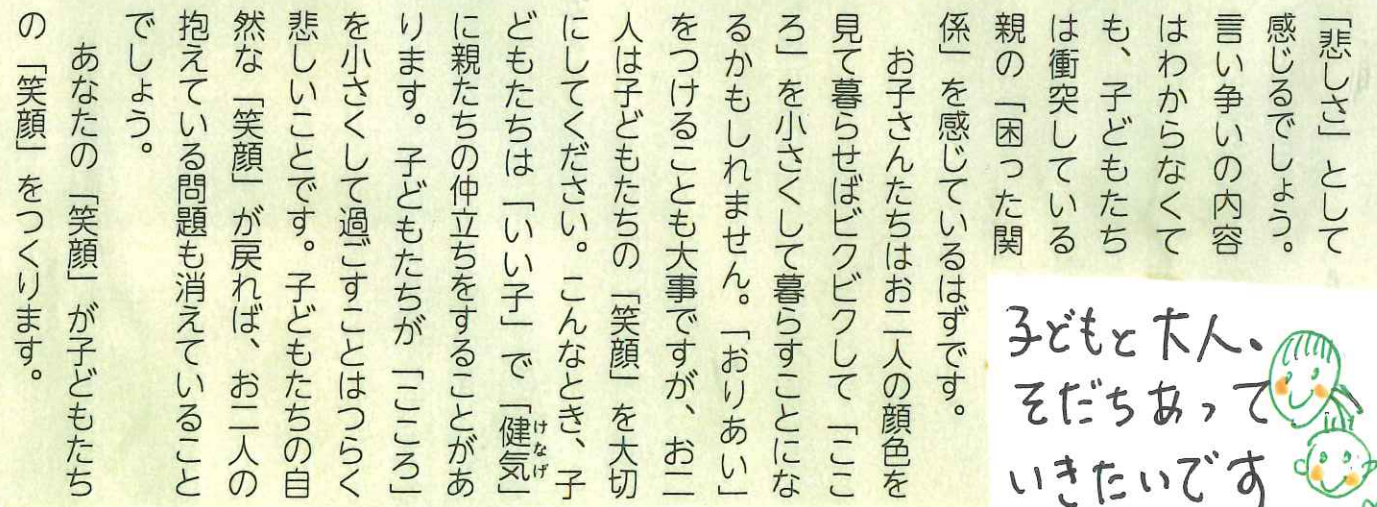 「悲しさ」として
感じるでしょう。
言い争いの内容
はわからなくて
も、子どもたち
は衝突している
親の「困った関
係」を感じているはずです。
お子さんたちはお二人の顔色を
見て暮らせばビクビクして「ここ
ろ」を小さくして暮らすことにな
るかもしれません。「おりあい」
をつけることも大事ですが、お二
人は子どもたちの「笑顔」を大切
にしてください。こんなとき、子
どもたちは「いい子」で「健気（けなげ）」
に親たちの仲立ちをすることがあ
ります。子どもたちが「こころ」
を小さくして過ごすことはつらく
悲しいことです。子どもたちの自
然な「笑顔」が戻れば、お二人の
抱えている問題も消えていること
でしょう。
あなたの「笑顔」が子どもたち
の「笑顔」をつくります。
子どもと大人。
そだちあって
いきたいです